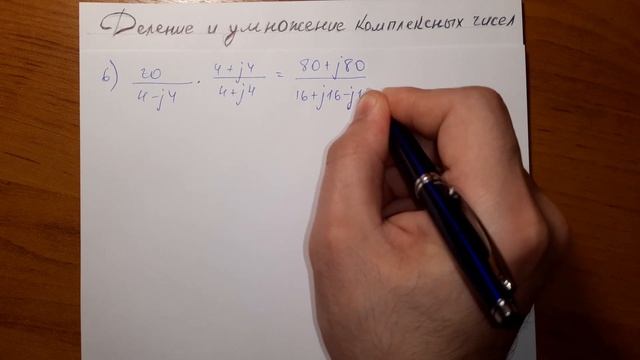 Деление и умножение комплексных чисел
б) 20/(4-j4) · (4+j4)/(4+j4) = (80+j80)/(16+j16-j1